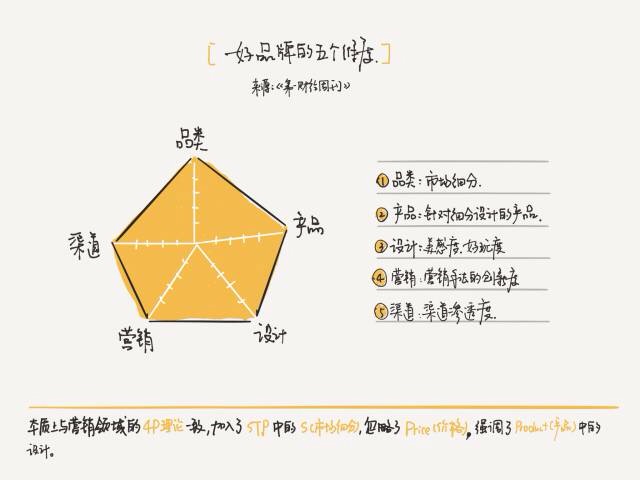 [一好品牌的五个维度.]
来源:《第一财经周刊》
品类
产品
渠道
营销
设计
① 品类:市场细分.
② 产品:针对细分设计的产品.
③ 设计:美感度.好玩度
④ 营销:营销手法的创新度
⑤ 渠道:渠道渗透度.
本质上与营销领域的4P理论一致,加入了STP中的S(市场细分),忽略了Price(价格),强调了Product(产品)中的
设计。